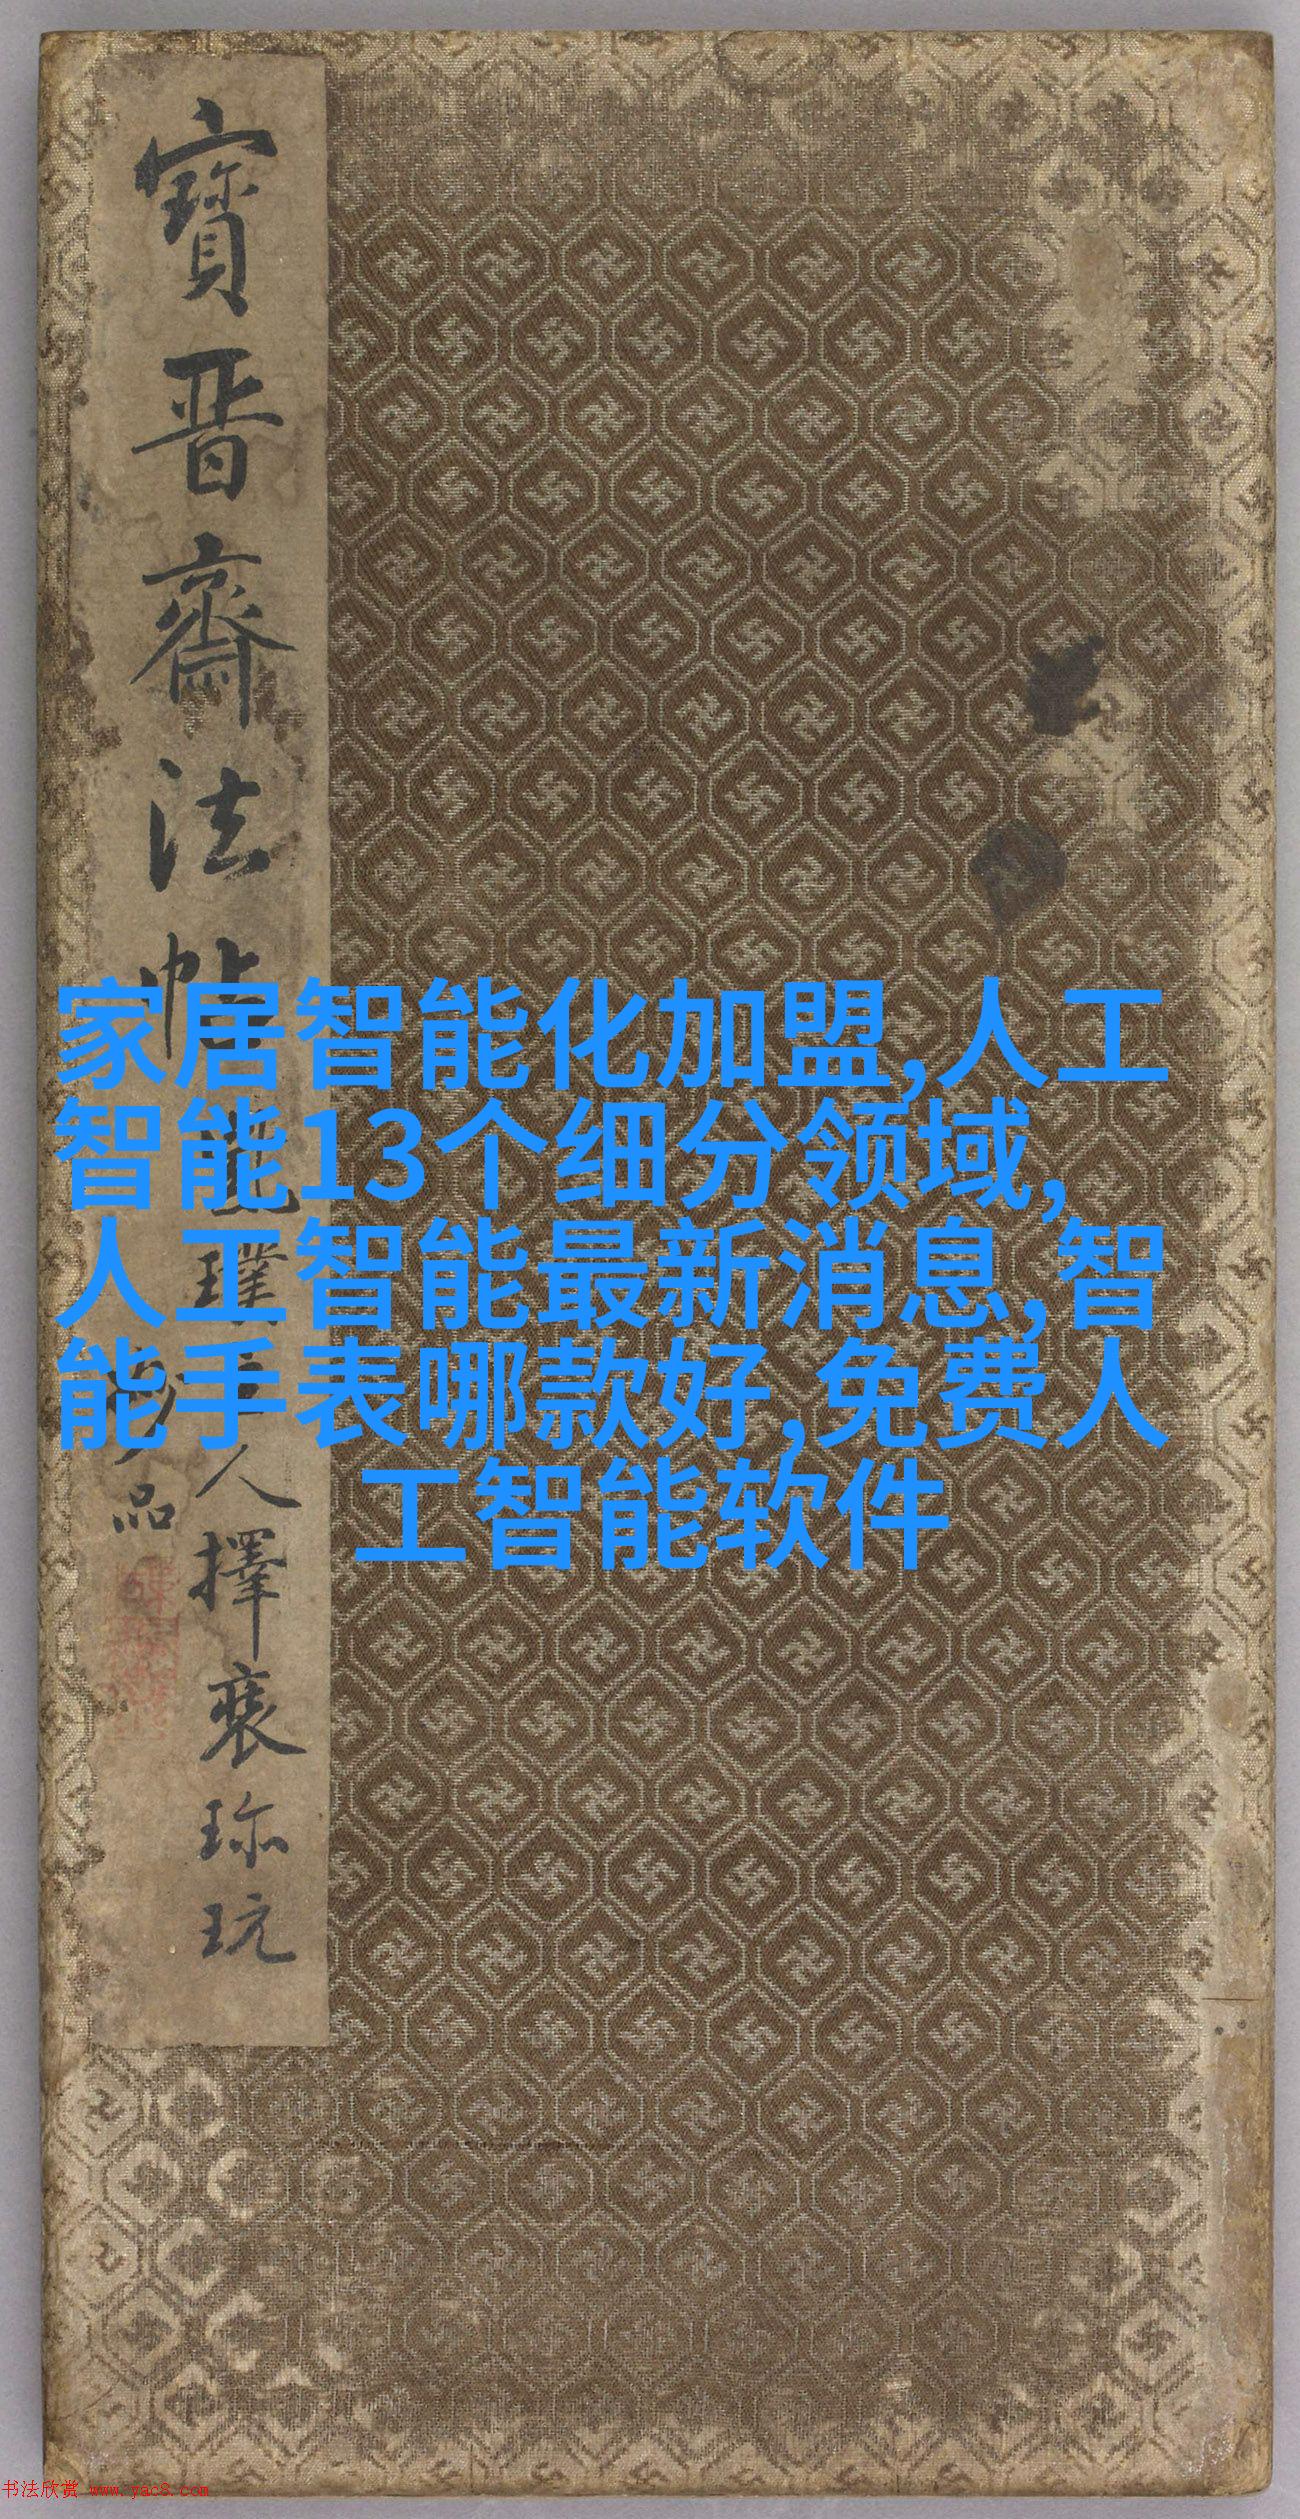 寶晋齋法帖
璞
人擇裒珎玩
品
家居智能化加盟,人工
智能13个细分领域,
人工智能最新消息,智
能手表哪款好,免费人
工智能软件
书法欣赏 www.yac8.com